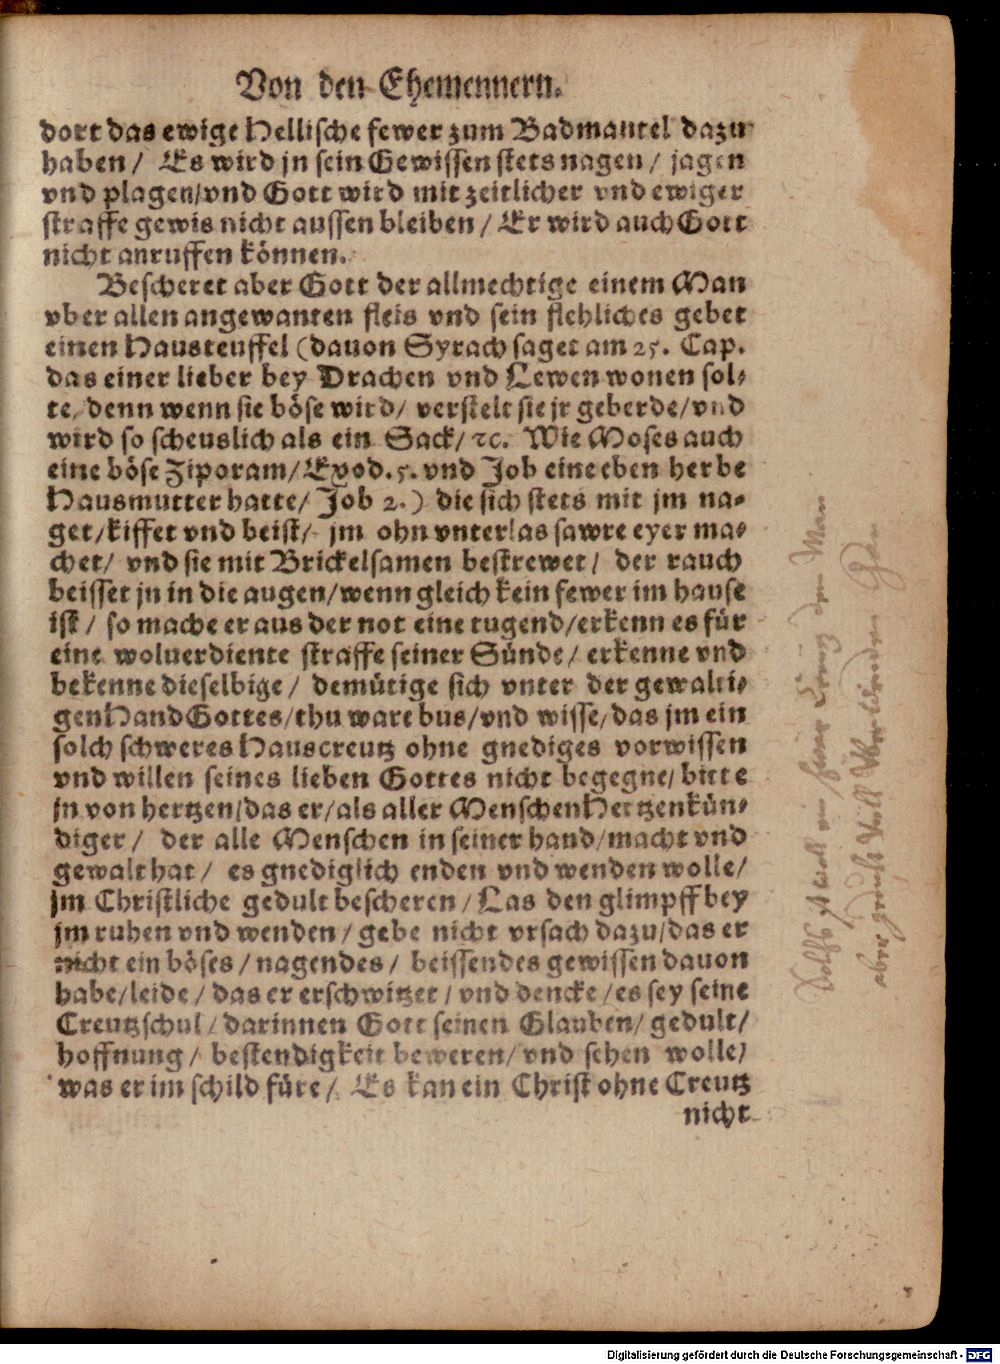 Von den Ehemennern.
dort das ewige Hellische fewer zum Badmantel dazu
haben / Es wird jn sein Gewissen stets nagen / jagen
vnd plagen/vnd Gott wird mit zeitlicher vnd ewiger
straffe gewis nicht aussen bleiben / Er wird auch Gott
nicht anruffen können.
Bescheret aber Gott der allmechtige einem Man
vber allen angewanten fleis vnd sein flehliches gebet
einen Hausteuffel (dauon Syrach saget am 25. Cap.
das einer lieber bey Drachen vnd Lewen wonen sol⸗
te, denn wenn sie böse wird/ verstelt sie jr geberde/vnd
wird so scheuslich als ein Sack/ ꝛc. Wie Moses auch
eine böse Ziporam/Exod.5. vnd Job eine eben herbe
Hausmutter hatte/ Job 2.) die sich stets mit jm na⸗
get/kiffet vnd beist/ jm ohn vnterlas sawre eyer ma⸗
chet/ vnd sie mit Brickelsamen bestrewet / der rauch
beisset jn in die augen/wenn gleich kein fewer im hause
ist / so mache er aus der not eine tugend/erkenn es für
eine woluerdiente straffe seiner Sünde/ erkenne vnd
bekenne dieselbige / demütige sich vnter der gewalti⸗
gen Hand Gottes/thu ware bus/vnd wisse, das jm ein
solch schweres Hauscreutz ohne gnediges vorwissen
vnd willen seines lieben Gottes nicht begegne/ bitte
jn von hertzen/das er/als aller Menschen Hertzenkün⸗
diger / der alle Menschen in seiner hand/macht vnd
gewalt hat / es gnediglich enden vnd wenden wolle/
jm Christliche gedult bescheren / Las den glimpff bey
jm ruhen vnd wenden / gebe nicht vrsach dazu/das er
nicht ein böses / nagendes / beissendes gewissen dauon
habe/leide / das er erschwitzet / vnd dencke / es sey seine
Creutzschul / darinnen Gott seinen Glauben/ gedult/
hoffnung / bestendigkeit beweren/ vnd sehen wolle/
was er im schild füre /. Es kan ein Christ ohne Creutz
nicht
den Man
aber
Digitalisierung gefördert durch die Deutsche Forschungsgemeinschaft - DFG